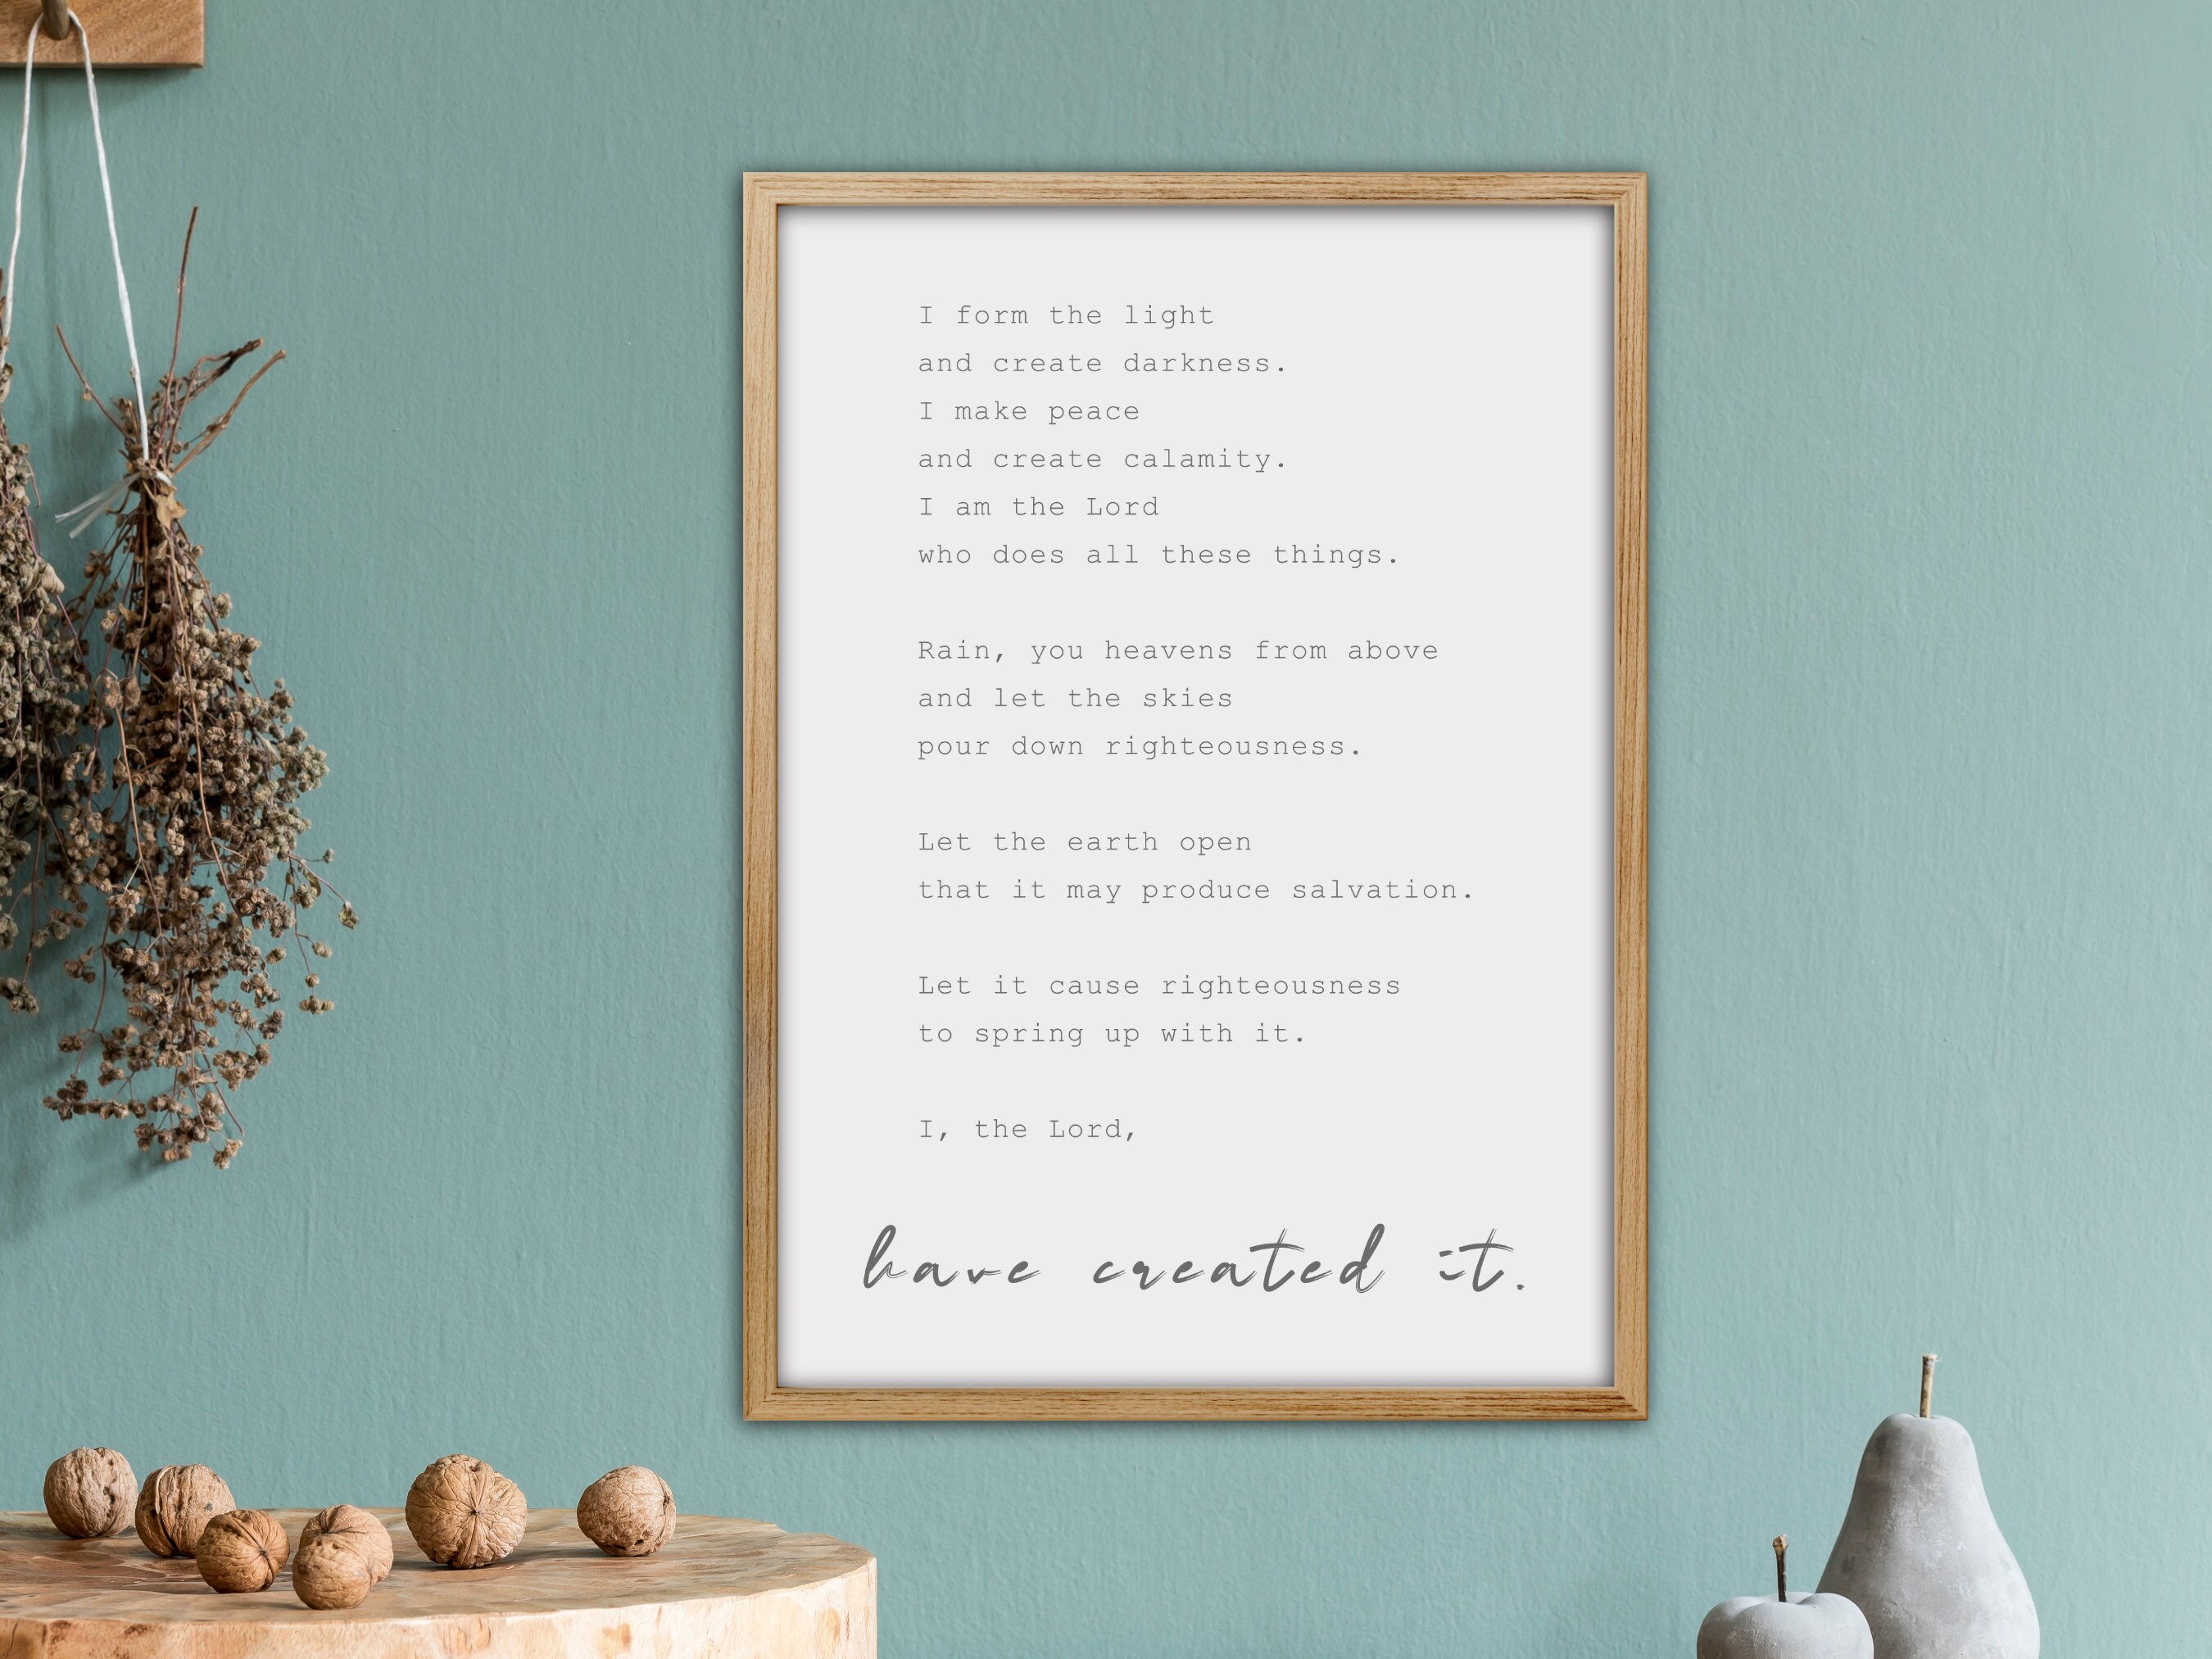 I form the light
and create darkness.
I make peace
and create calamity.
I am the Lord
who does all these things.
Rain, you heavens from above
and let the skies
pour down righteousness.
Let the earth open
that it may produce salvation.
Let it cause righteousness
to spring up with it.
I, the Lord,
have created it.